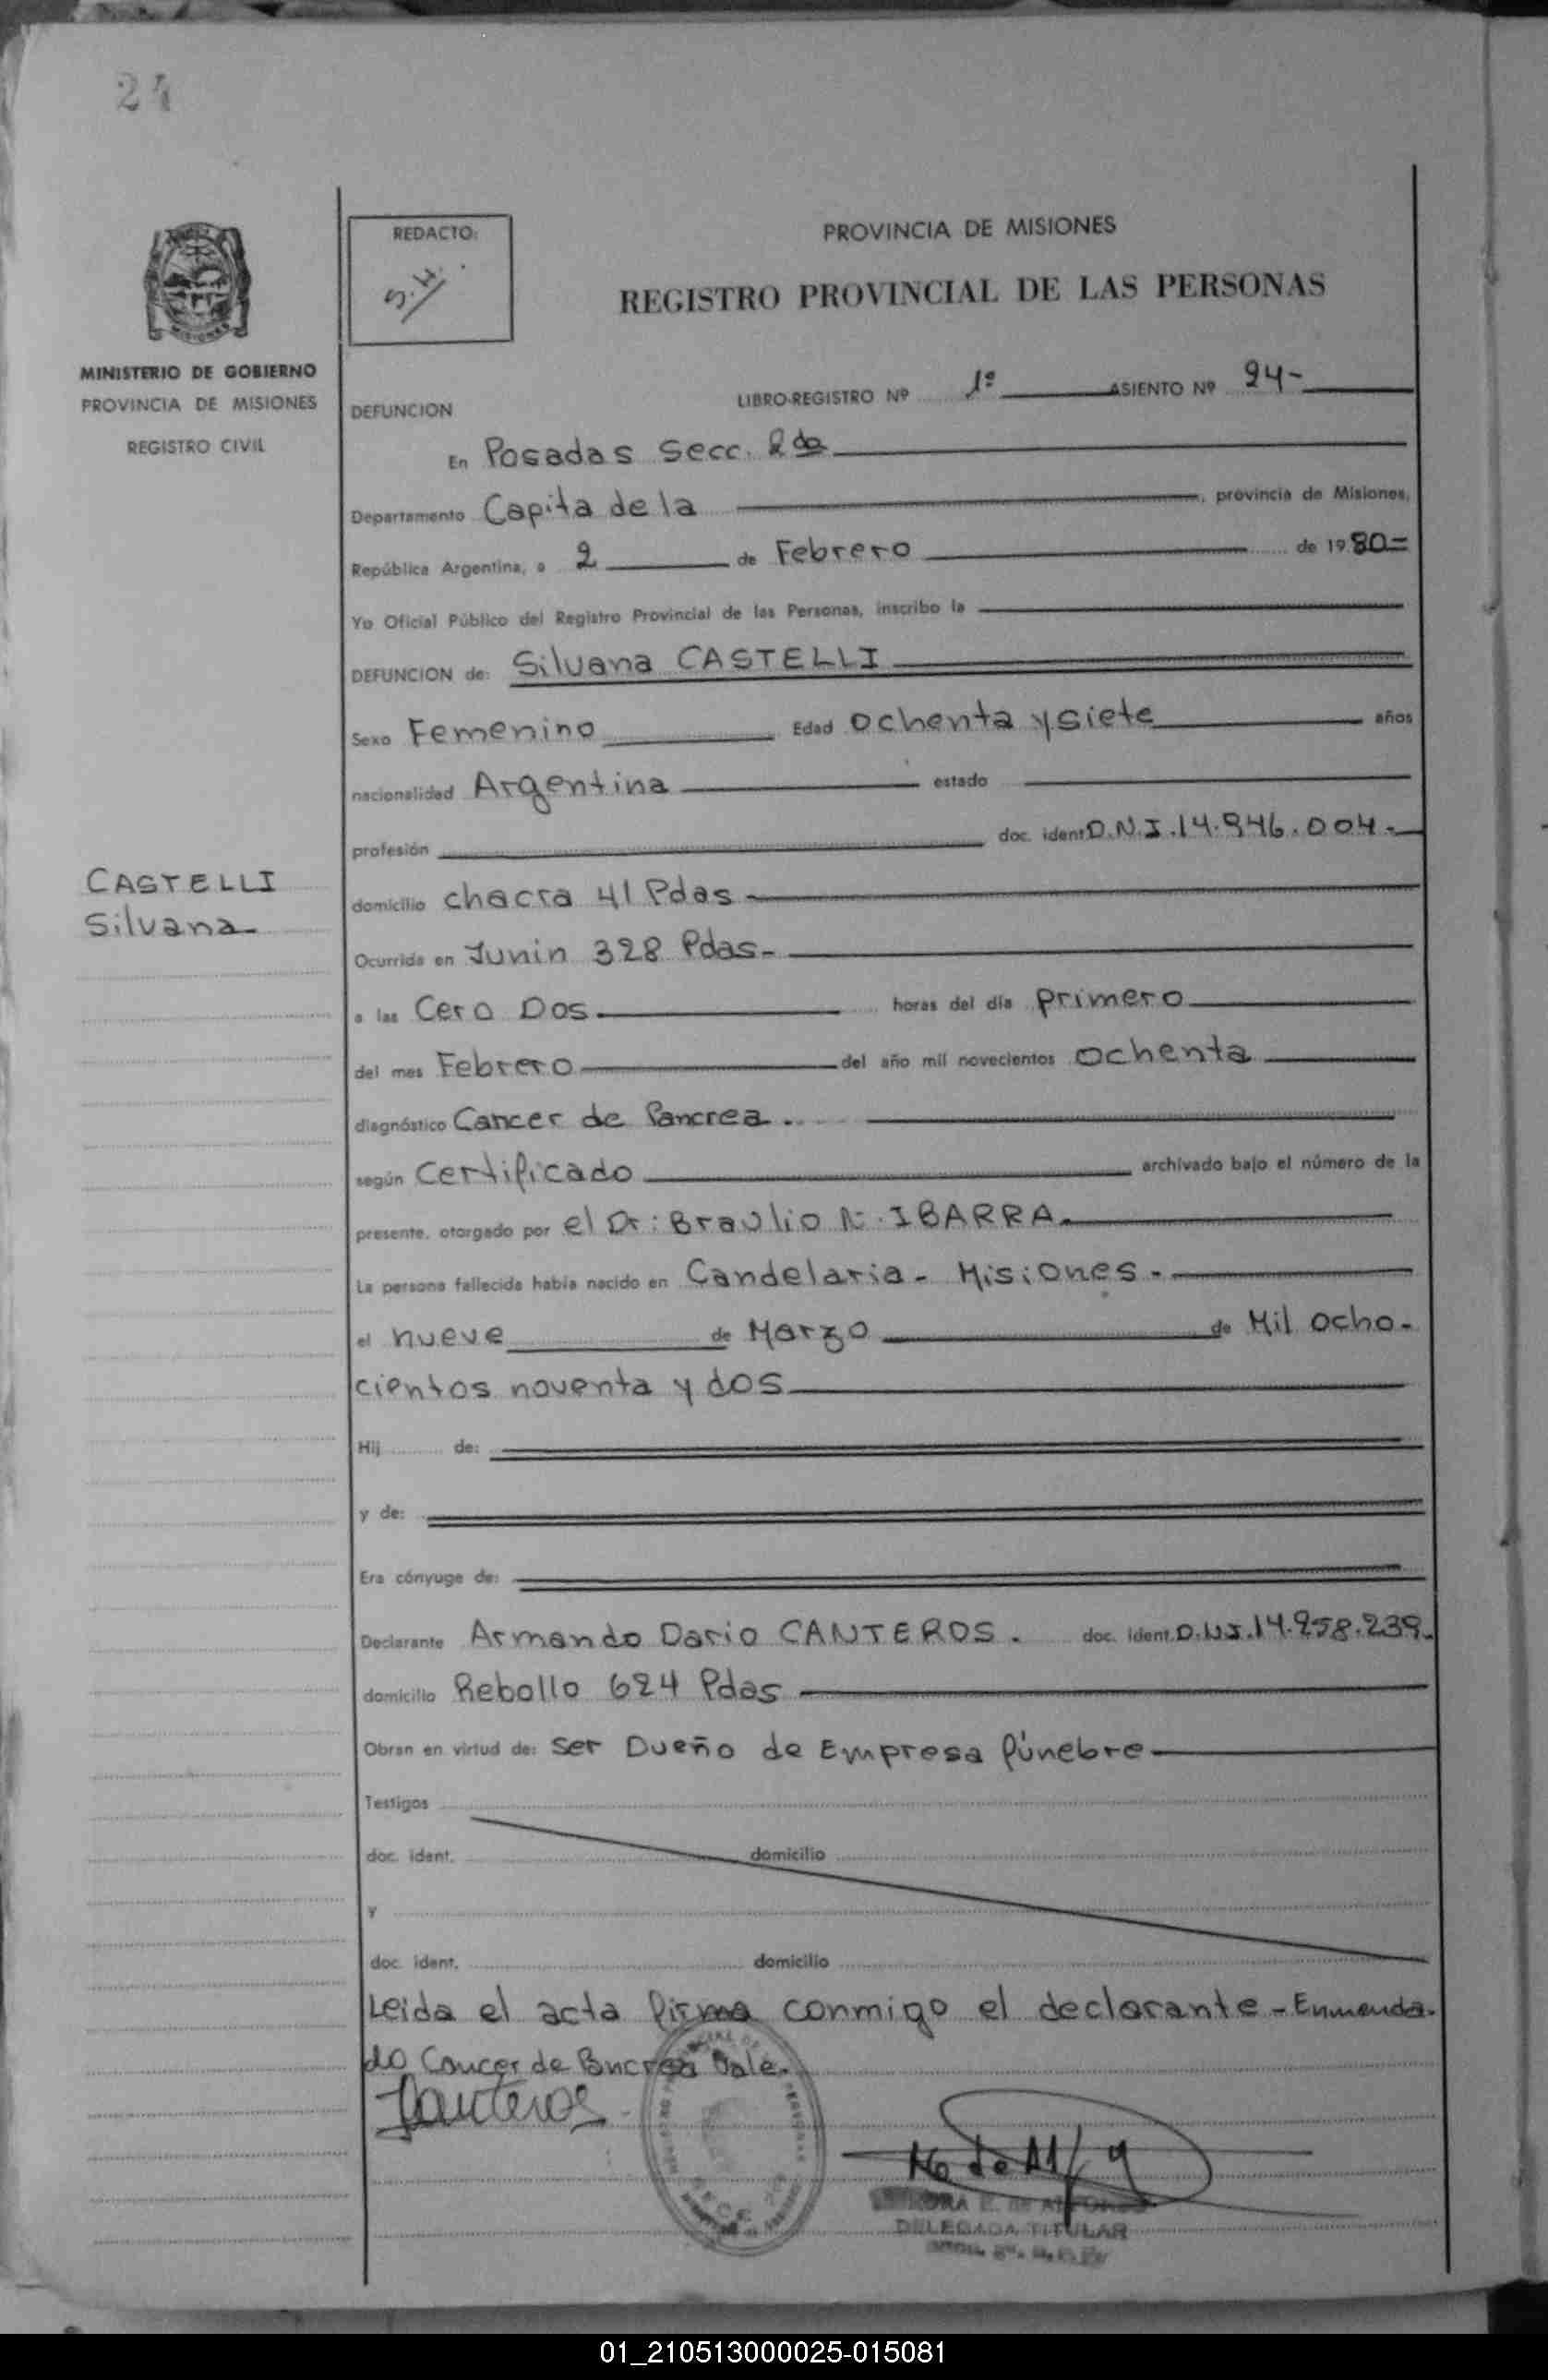 24
MINISTERIO DE GOBIERNO
PROVINCIA DE MISIONES
REGISTRO CIVIL
CASTELLI
Silvana
REDACTO:
PROVINCIA DE MISIONES
REGISTRO PROVINCIAL DE LAS PERSONAS
DEFUNCION LIBRO-REGISTRO Nº 1º ASIENTO Nº 24-
En Posadas Secc. 2da
Departamento Capita de la , provincia de Misiones,
República Argentina, a 2 de Febrero de 1980=
Yo Oficial Público del Registro Provincial de las Personas, inscribo la
DEFUNCION de: Silvana CASTELLI
Sexo Femenino Edad ochenta y siete años
nacionalidad Argentina estado
profesión doc. ident D.N.I. 14.946.004.-
domicilio chacra 41 Pdas
Ocurrida en Junin 328 Pdas-
a las Cero Dos horas del día primero
del mes Febrero del año mil novecientos ochenta
diagnóstico Cancer de Pancrea.
según Certificado archivado bajo el número de la
presente, otorgado por el Dr: Braulio N. IBARRA.
La persona fallecida había nacido en Candelaria - Misiones.-
el nueve de Marzo de Mil ocho-
cientos noventa y dos
Hij de:
y de:
Era cónyuge de:
Declarante Armando Dario CANTEROS. doc. ident. D.N.I. 14.258.239.
domicilio Rebollo 624 Pdas
Obran en virtud de: ser Dueño de Empresa fúnebre
Testigos
doc. ident. domicilio
y
doc. ident. domicilio
Leida el acta firma conmigo el declarante - Enmenda-
do Cancer de Pancrea Vale.
Canteros
DELEGADA TITULAR
01_210513000025-015081